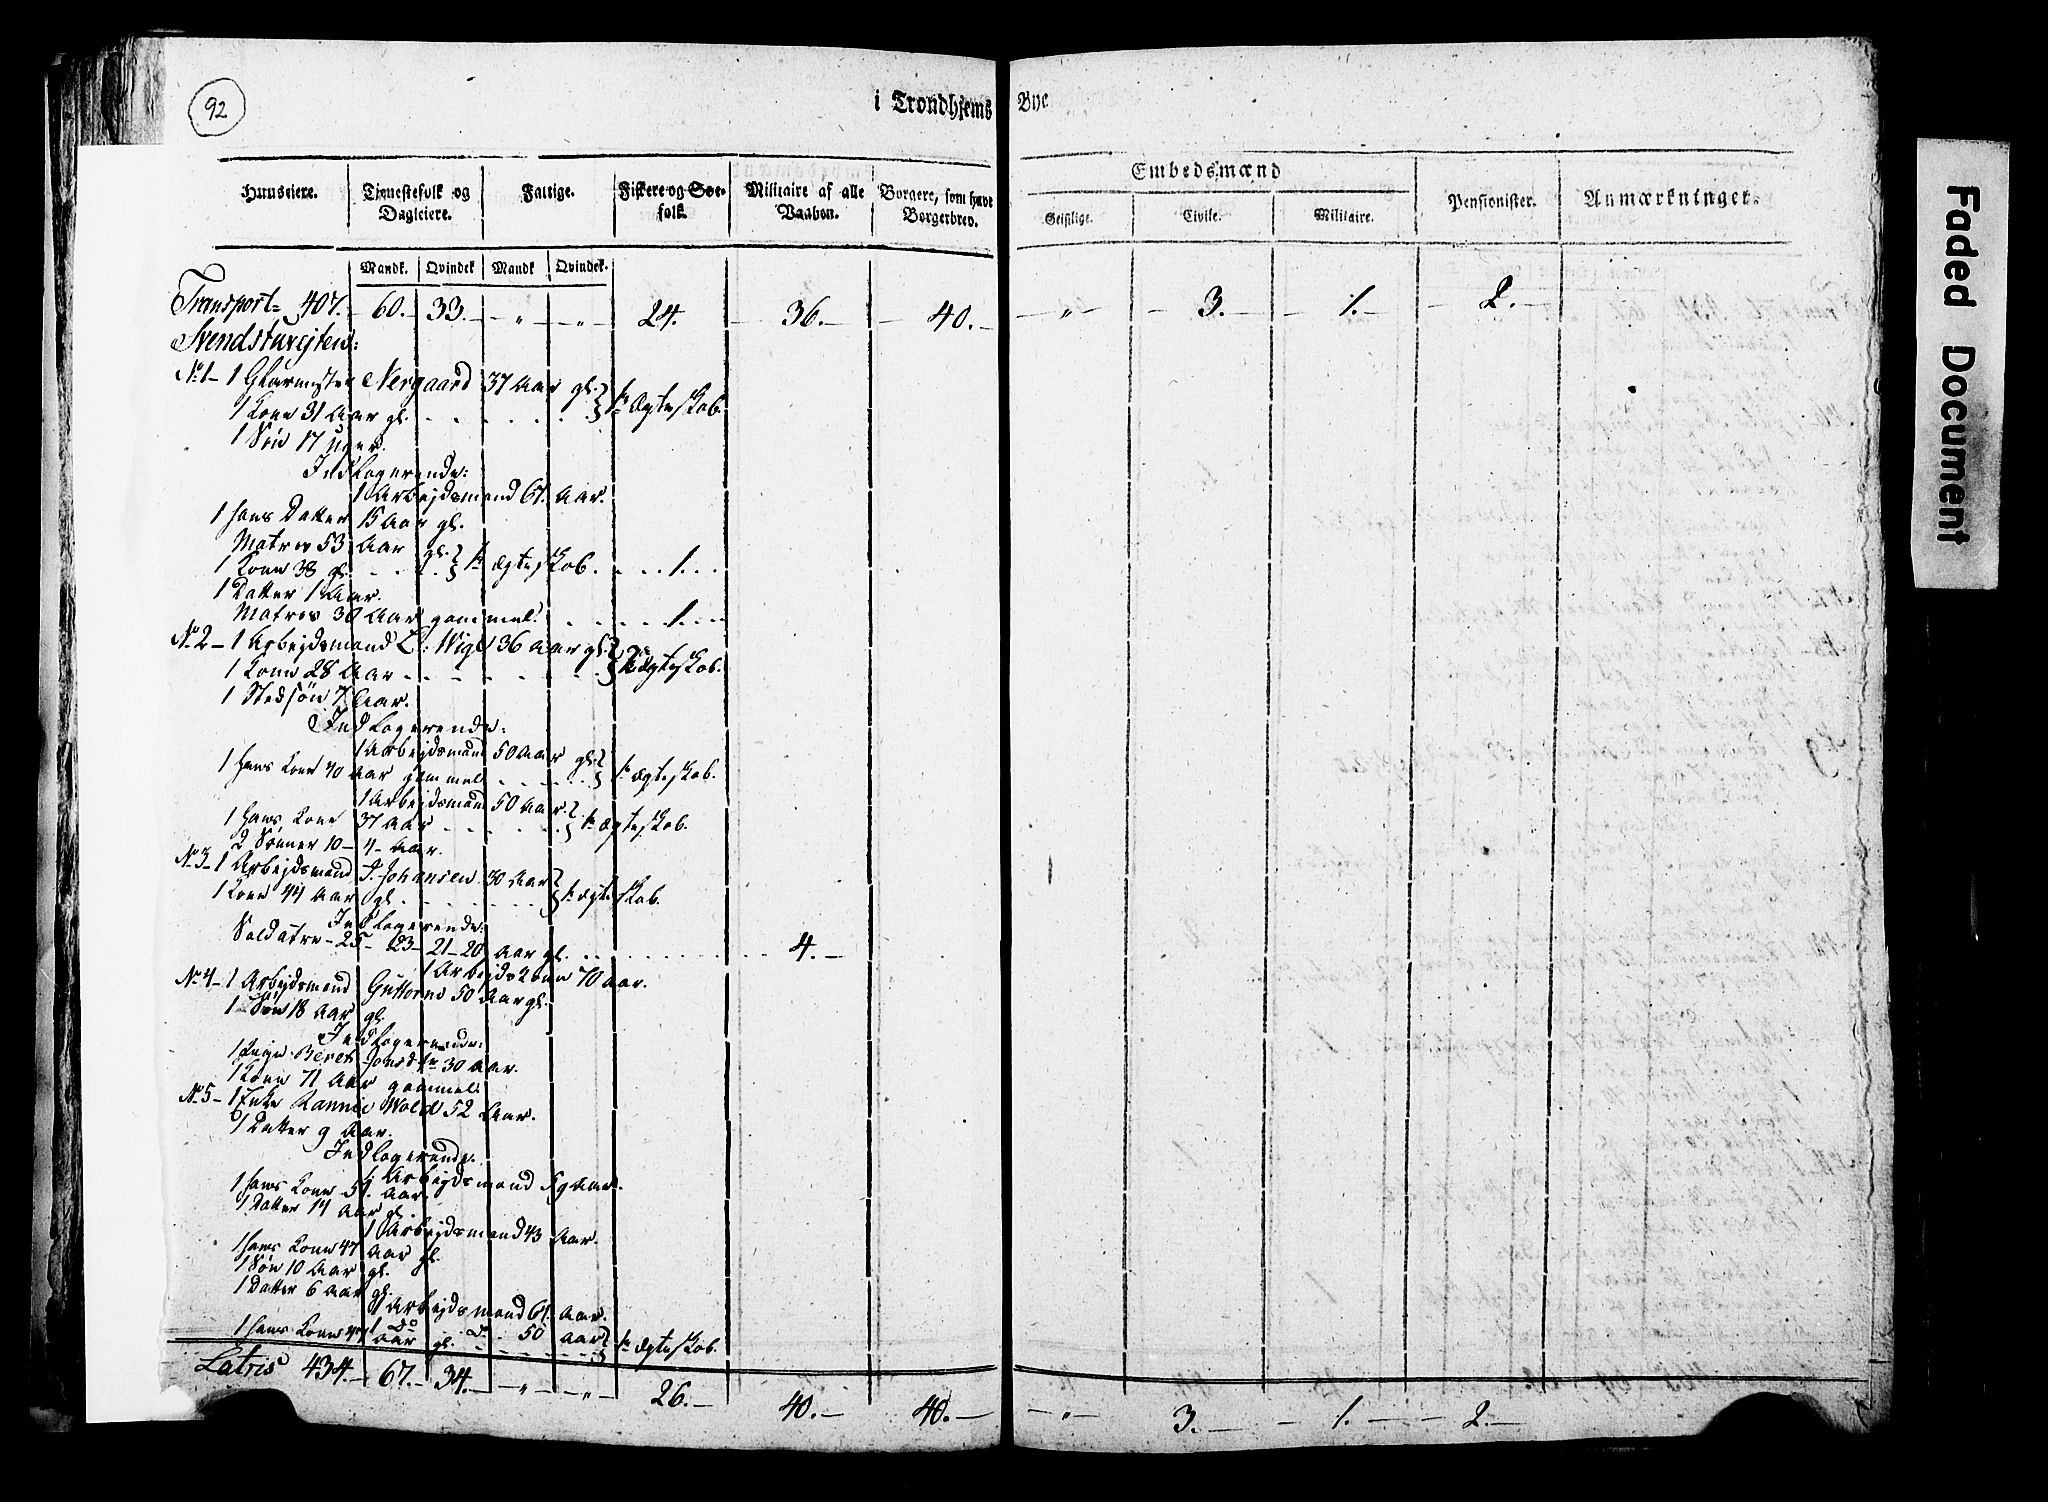 92
i Trondhjems Bye
Huuseiere. Tienestefolk og Dagleiere. Fattige. Fiskere og Søe-folk. Militaire af alle Vaaben. Borgere, som have Borgerbrev. Embedsmænd Geistlige. Civile. Militaire. Pensionister. Anmærkninger.
Mandk. Qvindek Mandk Qvindek.
Transport= 407. — 60. — 33. — „ — „ — 24. — 36. — 40. — „ — 3. — 1. — 2. —
Svendstuvejten:
No 1 - 1 Glarmester Nergaard 37 Aar gl. } 1te Ægteskab.
1 Kone 31 Aar gl.
1 Søn 17 Uger.
Indlogerende:
1 Arbejdsmand 61. Aar.
1 Hans Datter 15 Aar gl.
Matros 53 Aar gl. } 1te Ægteskab. . . . 1. . .
1 Kone 38 gl.
1 Datter 1 Aar.
Matros 30 Aar gammel. . . . . 1. . .
No 2 - 1 Arbejdsmand L: Wigl 36 Aar gl. } Ægteskab.
1 Kone 28 Aar
1 Stedsøn 7 Aar.
Indlogerende:
1 Arbejdsmand 50 Aar gl. } 1te Ægteskab.
1 Hans Kone 40 Aar gammel
1 Arbejdsmand 50 Aar. } 1te Ægteskab.
1 Hans Kone 37 Aar
2 Sønner 10 - 4 - Aar.
No 3 - 1 Arbejdsmand J. Johansen 30 Aar } 1te Ægteskab.
1 Kone 44 Aar gl.
Indlogerende:
Soldater - 25 - 23 - 21 - 20 Aar gl. . . . . 4. —
1 Arbejdskone 70 Aar.
No 4 - 1 Arbejdsmand Guttorm 50 Aar gl.
1 Søn 18 Aar gl.
Indlogerende:
1 Pige Beret Jonsdtr 30 Aar.
1 Kone 71 Aar gammel.
No 5 - 1 Enke Rannie Wold 52 Aar.
1 Datter 9 Aar.
Indlogerende.
1 Arbejdsmand 59 Aar.
1 Hans Kone 51. Aar.
1 Datter 14 Aar gl.
1 Arbejdsmand 43 Aar.
1 Hans Kone 47 Aar gl.
1 Søn 10 Aar gl.
1 Datter 6 Aar gl.
1 Arbejdsmand 61. Aar.
1 Do Do 50 Aar } 1te Ægteskab.
1 Hans Kone 44 Aar gl.
Latris 434. — 67. — 34. — „ — „ — 26. — 40. — 40. — „ — 3. — 1. — 2. —
Faded Document